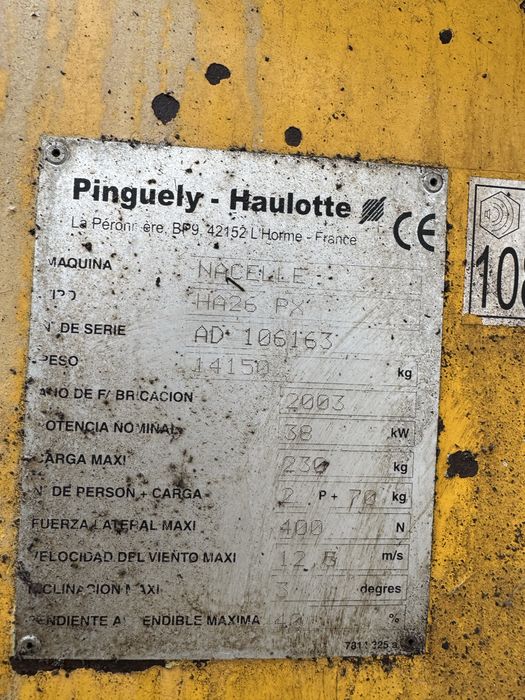 Pinguely - Haulotte
La Péronnière, BP9, 42152 L'Horme - France
CE
MAQUINA NACELLE
TIPO HA26 PX
N° DE SERIE AD 106163
PESO 14150 kg
ANO DE FABRICACION 2003
POTENCIA NOMINAL 38 kW
CARGA MAXI 230 kg
N° DE PERSON + CARGA 2 P + 70 kg
FUERZA LATERAL MAXI 400 N
VELOCIDAD DEL VIENTO MAXI 12,5 m/s
INCLINACION MAXI 3 degres
PENDIENTE ASCENDIBLE MAXIMA 40 %